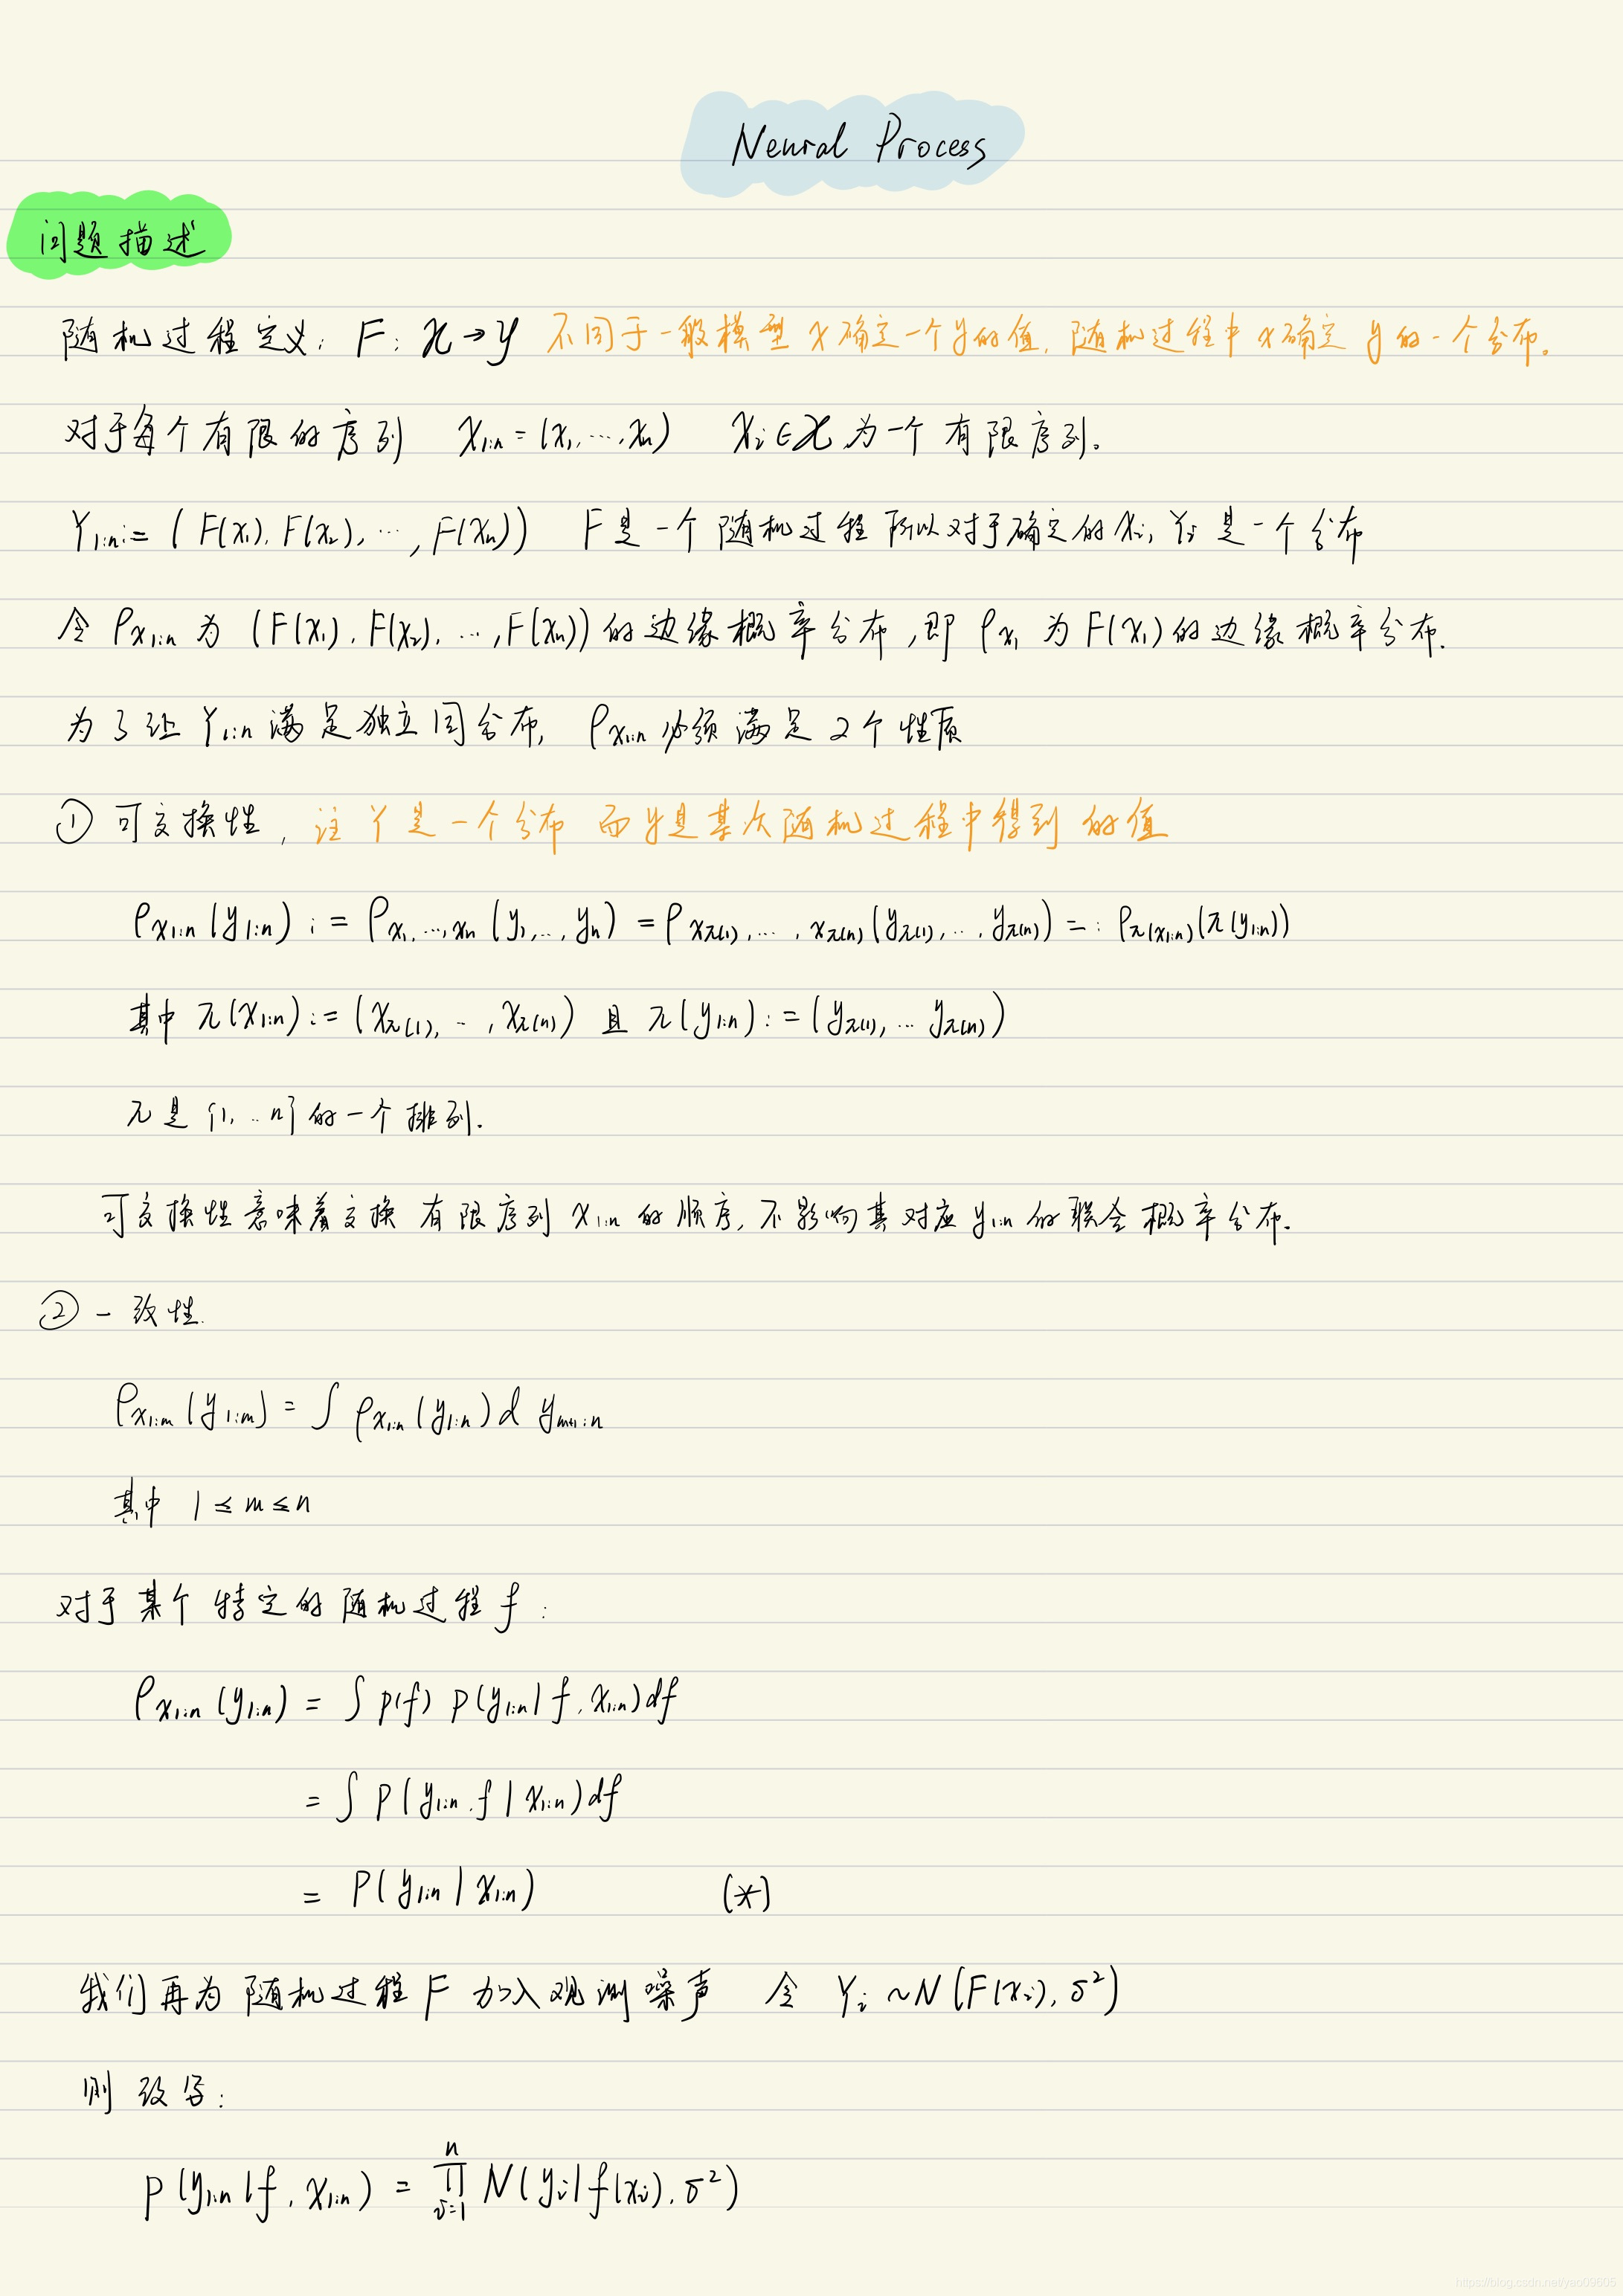 Neural Process
问题描述
随机过程定义: F: X→Y 不同于一般模型 x确定一个y的值, 随机过程中 x确定 y的一个分布。
对于每个有限的序列 x₁:ₙ = (x₁, …, xₙ) xᵢ∈X 为一个有限序列.
Y₁:ₙ := (F(x₁), F(x₂), …, F(xₙ)) F是一个随机过程所以对于确定的xᵢ, Yᵢ是一个分布
令 ρx₁:ₙ 为 (F(x₁), F(x₂), …, F(xₙ)) 的边缘概率分布, 即 ρx₁ 为 F(x₁) 的边缘概率分布.
为了让 Y₁:ₙ 满足独立同分布, ρx₁:ₙ 必须满足2个性质
① 可交换性, 注 Y是一个分布 而y是某次随机过程中得到的值
ρx₁:ₙ(y₁:ₙ) := ρx₁,…,xₙ(y₁,…,yₙ) = ρx_π(1),…,x_π(n)(y_π(1),…,y_π(n)) =: ρπ(x₁:ₙ)(π(y₁:ₙ))
其中 π(x₁:ₙ) := (x_π(1), …, x_π(n)) 且 π(y₁:ₙ) := (y_π(1), … y_π(n))
π是{1, … n}的一个排列.
可交换性意味着交换有限序列 x₁:ₙ 的顺序, 不影响其对应 y₁:ₙ 的联合概率分布.
② 一致性.
ρx₁:ₘ(y₁:ₘ) = ∫ ρx₁:ₙ(y₁:ₙ) d yₘ₊₁:ₙ
其中 1 ≤ m ≤ n
对于某个特定的随机过程 f:
ρx₁:ₙ(y₁:ₙ) = ∫ p(f) p(y₁:ₙ | f, x₁:ₙ) df
= ∫ p(y₁:ₙ, f | x₁:ₙ) df
= P(y₁:ₙ | x₁:ₙ) (*)
我们再为随机过程F加入观测噪声 令 Yᵢ ~ N(F(xᵢ), σ²)
则改写:
p(y₁:ₙ | f, x₁:ₙ) = ∏ᵢ₌₁ⁿ N(yᵢ | f(xᵢ), σ²)
https://blog.csdn.net/yao09605